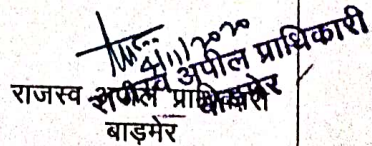 4/11/2020
राजस्व अपील प्राधिकारी
बाड़मेर
राजस्व अपील प्राधिकारी
बाड़मेर